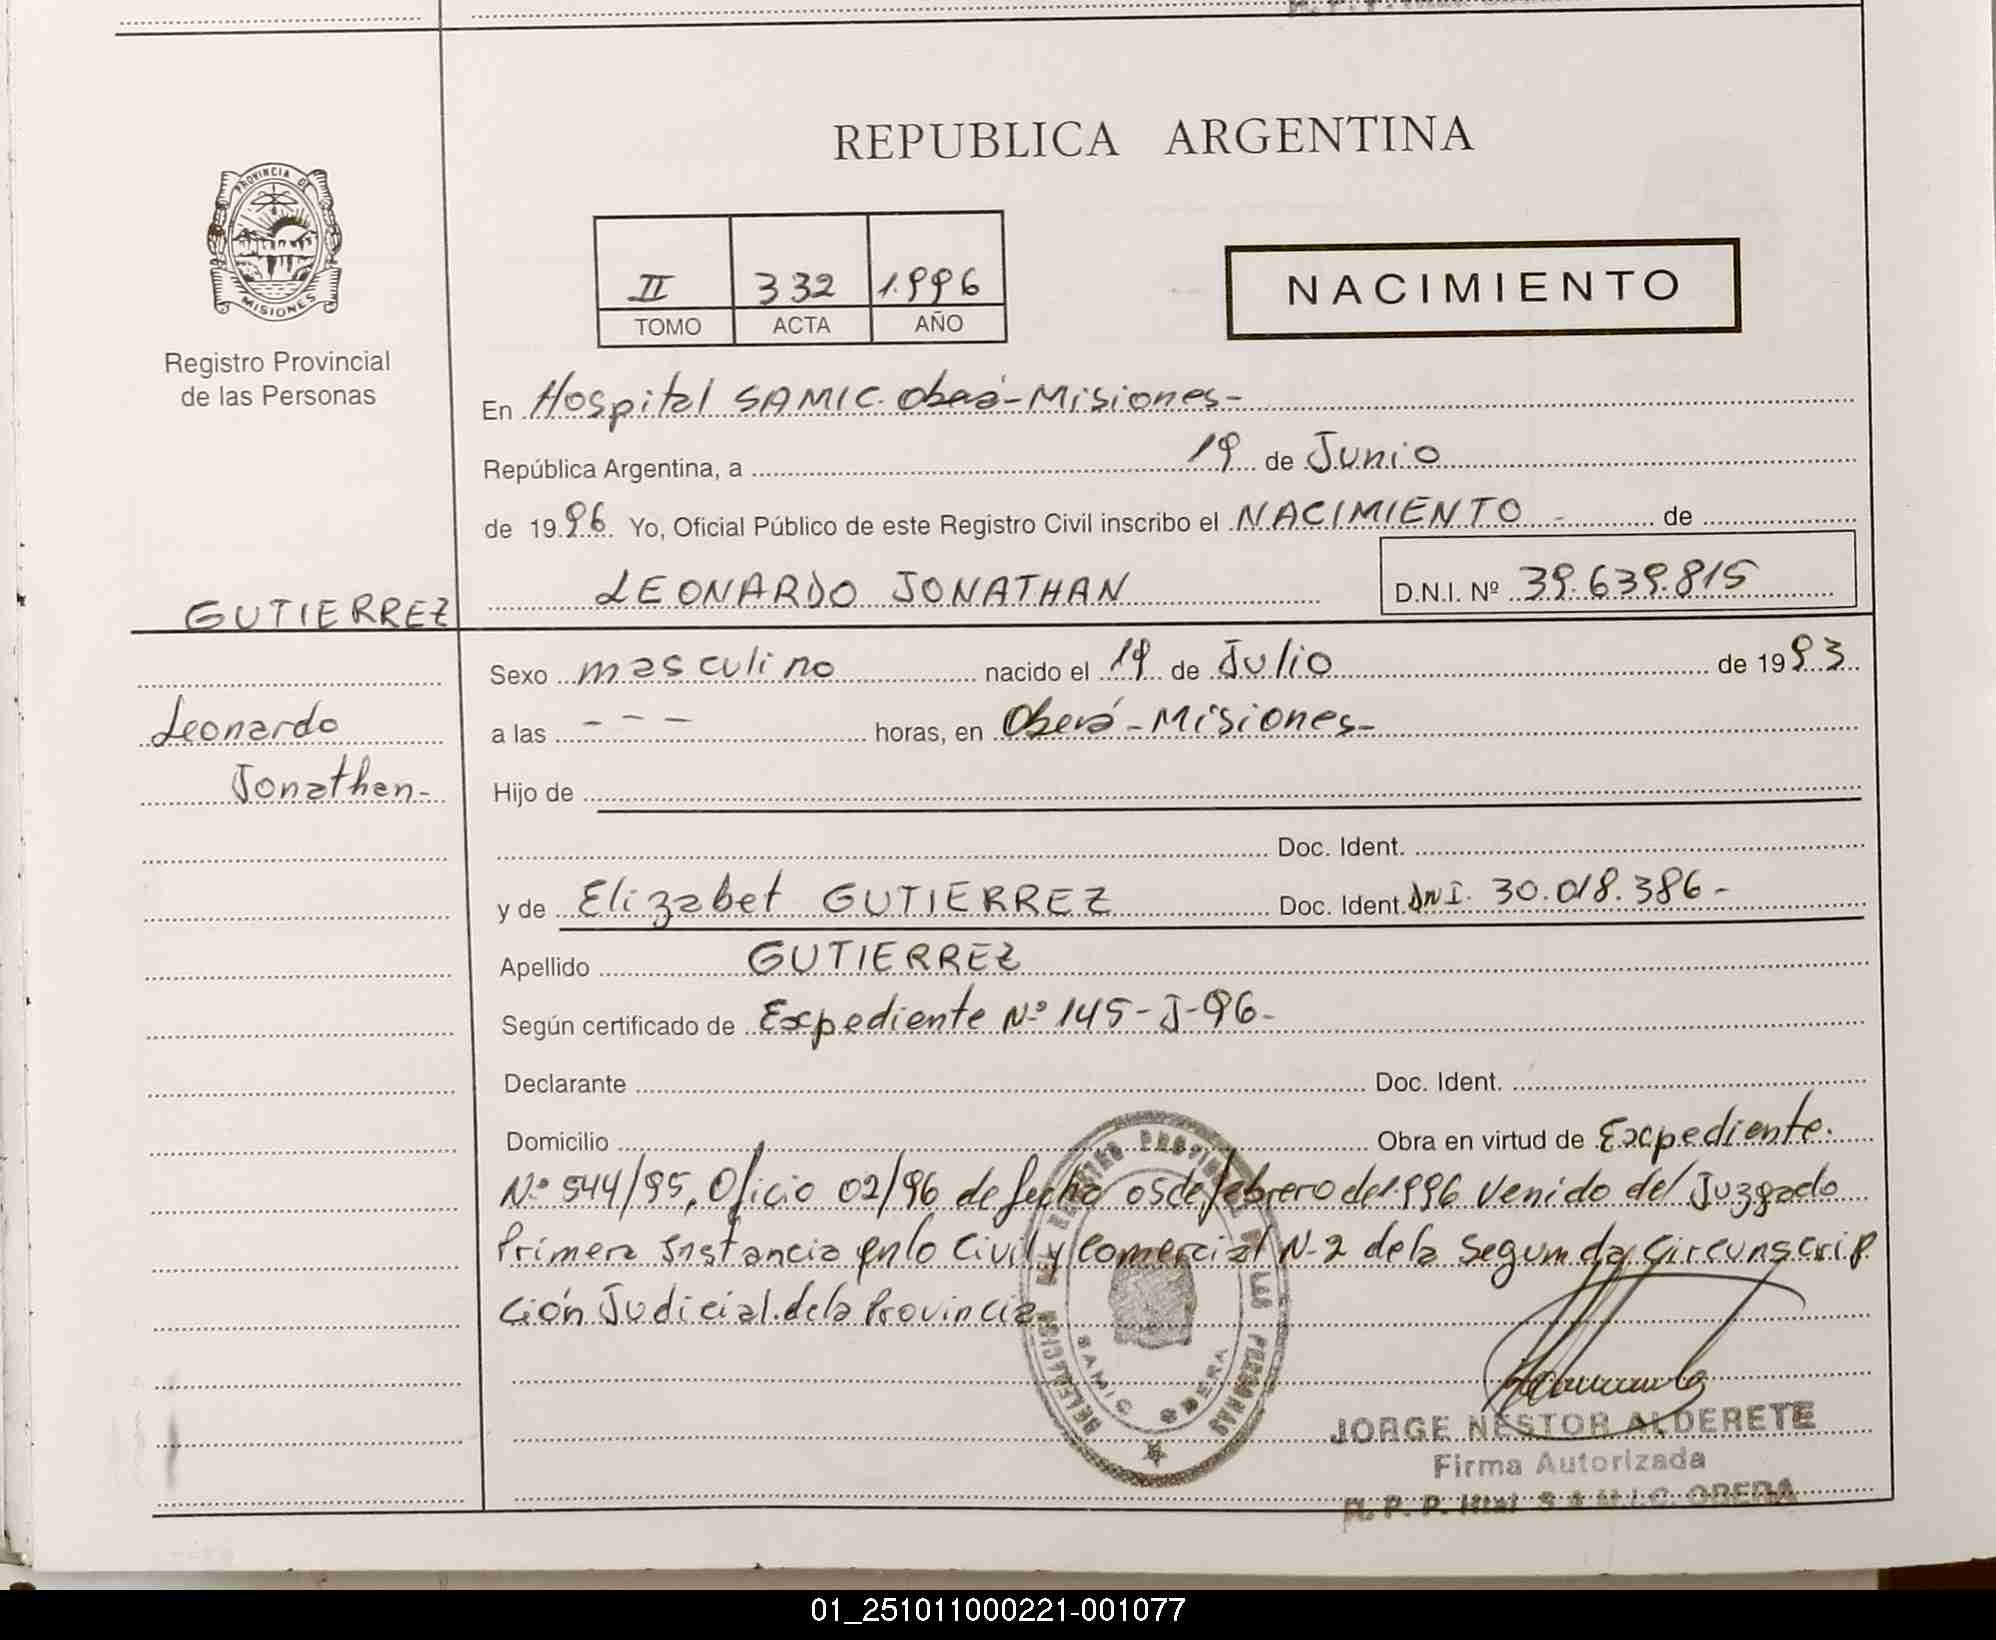 REPUBLICA ARGENTINA
PROVINCIA DE
MISIONES
Registro Provincial
de las Personas
II 332 1.996
TOMO ACTA AÑO
NACIMIENTO
En Hospital SAMIC. Oberá-Misiones-
República Argentina, a 19 de Junio
de 1996 Yo, Oficial Público de este Registro Civil inscribo el NACIMIENTO - de
GUTIERREZ LEONARDO JONATHAN D.N.I. Nº 39.639.815
Sexo masculino nacido el 19 de Julio de 1993
Leonardo
Jonathan-
a las - - - horas, en Oberá-Misiones-
Hijo de
Doc. Ident.
y de Elizabet GUTIERREZ Doc. Ident. DNI. 30.018.386-
Apellido GUTIERREZ
Según certificado de Expediente Nº 145-J-96-
Declarante Doc. Ident.
Domicilio Obra en virtud de Expediente.
Nº 544/95, Oficio 02/96 de fecha 05 de febrero de 1.996 venido del Juzgado
Primera Instancia en lo Civil y Comercial N-2 de la Segunda Circunscrip
ción Judicial de la Provincia
DELEGACION DEL REGISTRO PROVINCIAL DE LAS PERSONAS
SAMIC OBERA
JORGE NESTOR ALDERETE
Firma Autorizada
R. P. P. Htal S.A.M.I.C. OBERA
01_251011000221-001077